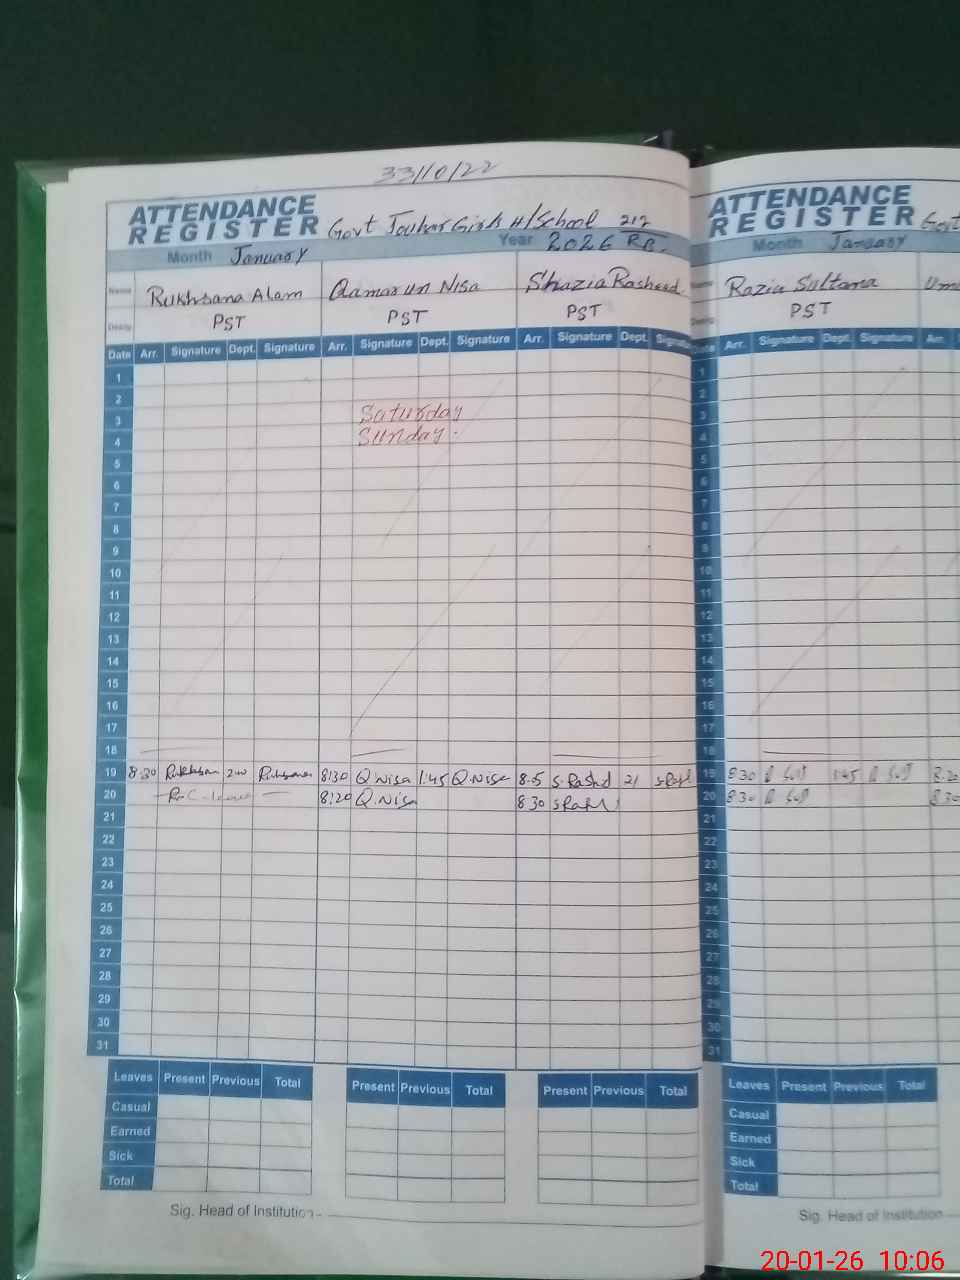 33/10/22
ATTENDANCE REGISTER Govt Jouhar Girls H/School 212
Month January Year 2026 RB.
Name Rukhsana Alam Qamar un Nisa Shazia Rasheed
Desig: PST PST PST
Date Arr. Signature Dept. Signature Arr. Signature Dept. Signature Arr. Signature Dept. Signatu
1
2
3 Saturday
4 Sunday.
5
6
7
8
9
10
11
12
13
14
15
16
17
18
19 8:30 Rukhsan 2:00 Rukhsana 8:30 Q Nisa 1:45 Q.Nisa 8.5 S.Rashd 21
20 C-leave 8:20 Q.Nisa 8 30
21
22
23
24
25
26
27
28
29
30
31
Leaves Present Previous Total Present Previous Total Present Previous Total
Casual
Earned
Sick
Total
Sig. Head of Institution
ATTENDANCE REGISTER Govt
Month January
Razia Sultana
PST
Date Arr. Signature Dept. Signature Arr.
1
2
3
4
5
6
7
8
9
10
11
12
13
14
15
16
17
18
19 8 30 1:45 8.20
20 8 30 8 30
21
22
23
24
25
26
27
28
29
30
31
Leaves Present Previous Total
Casual
Earned
Sick
Total
Sig. Head of Institution
20-01-26 10:06